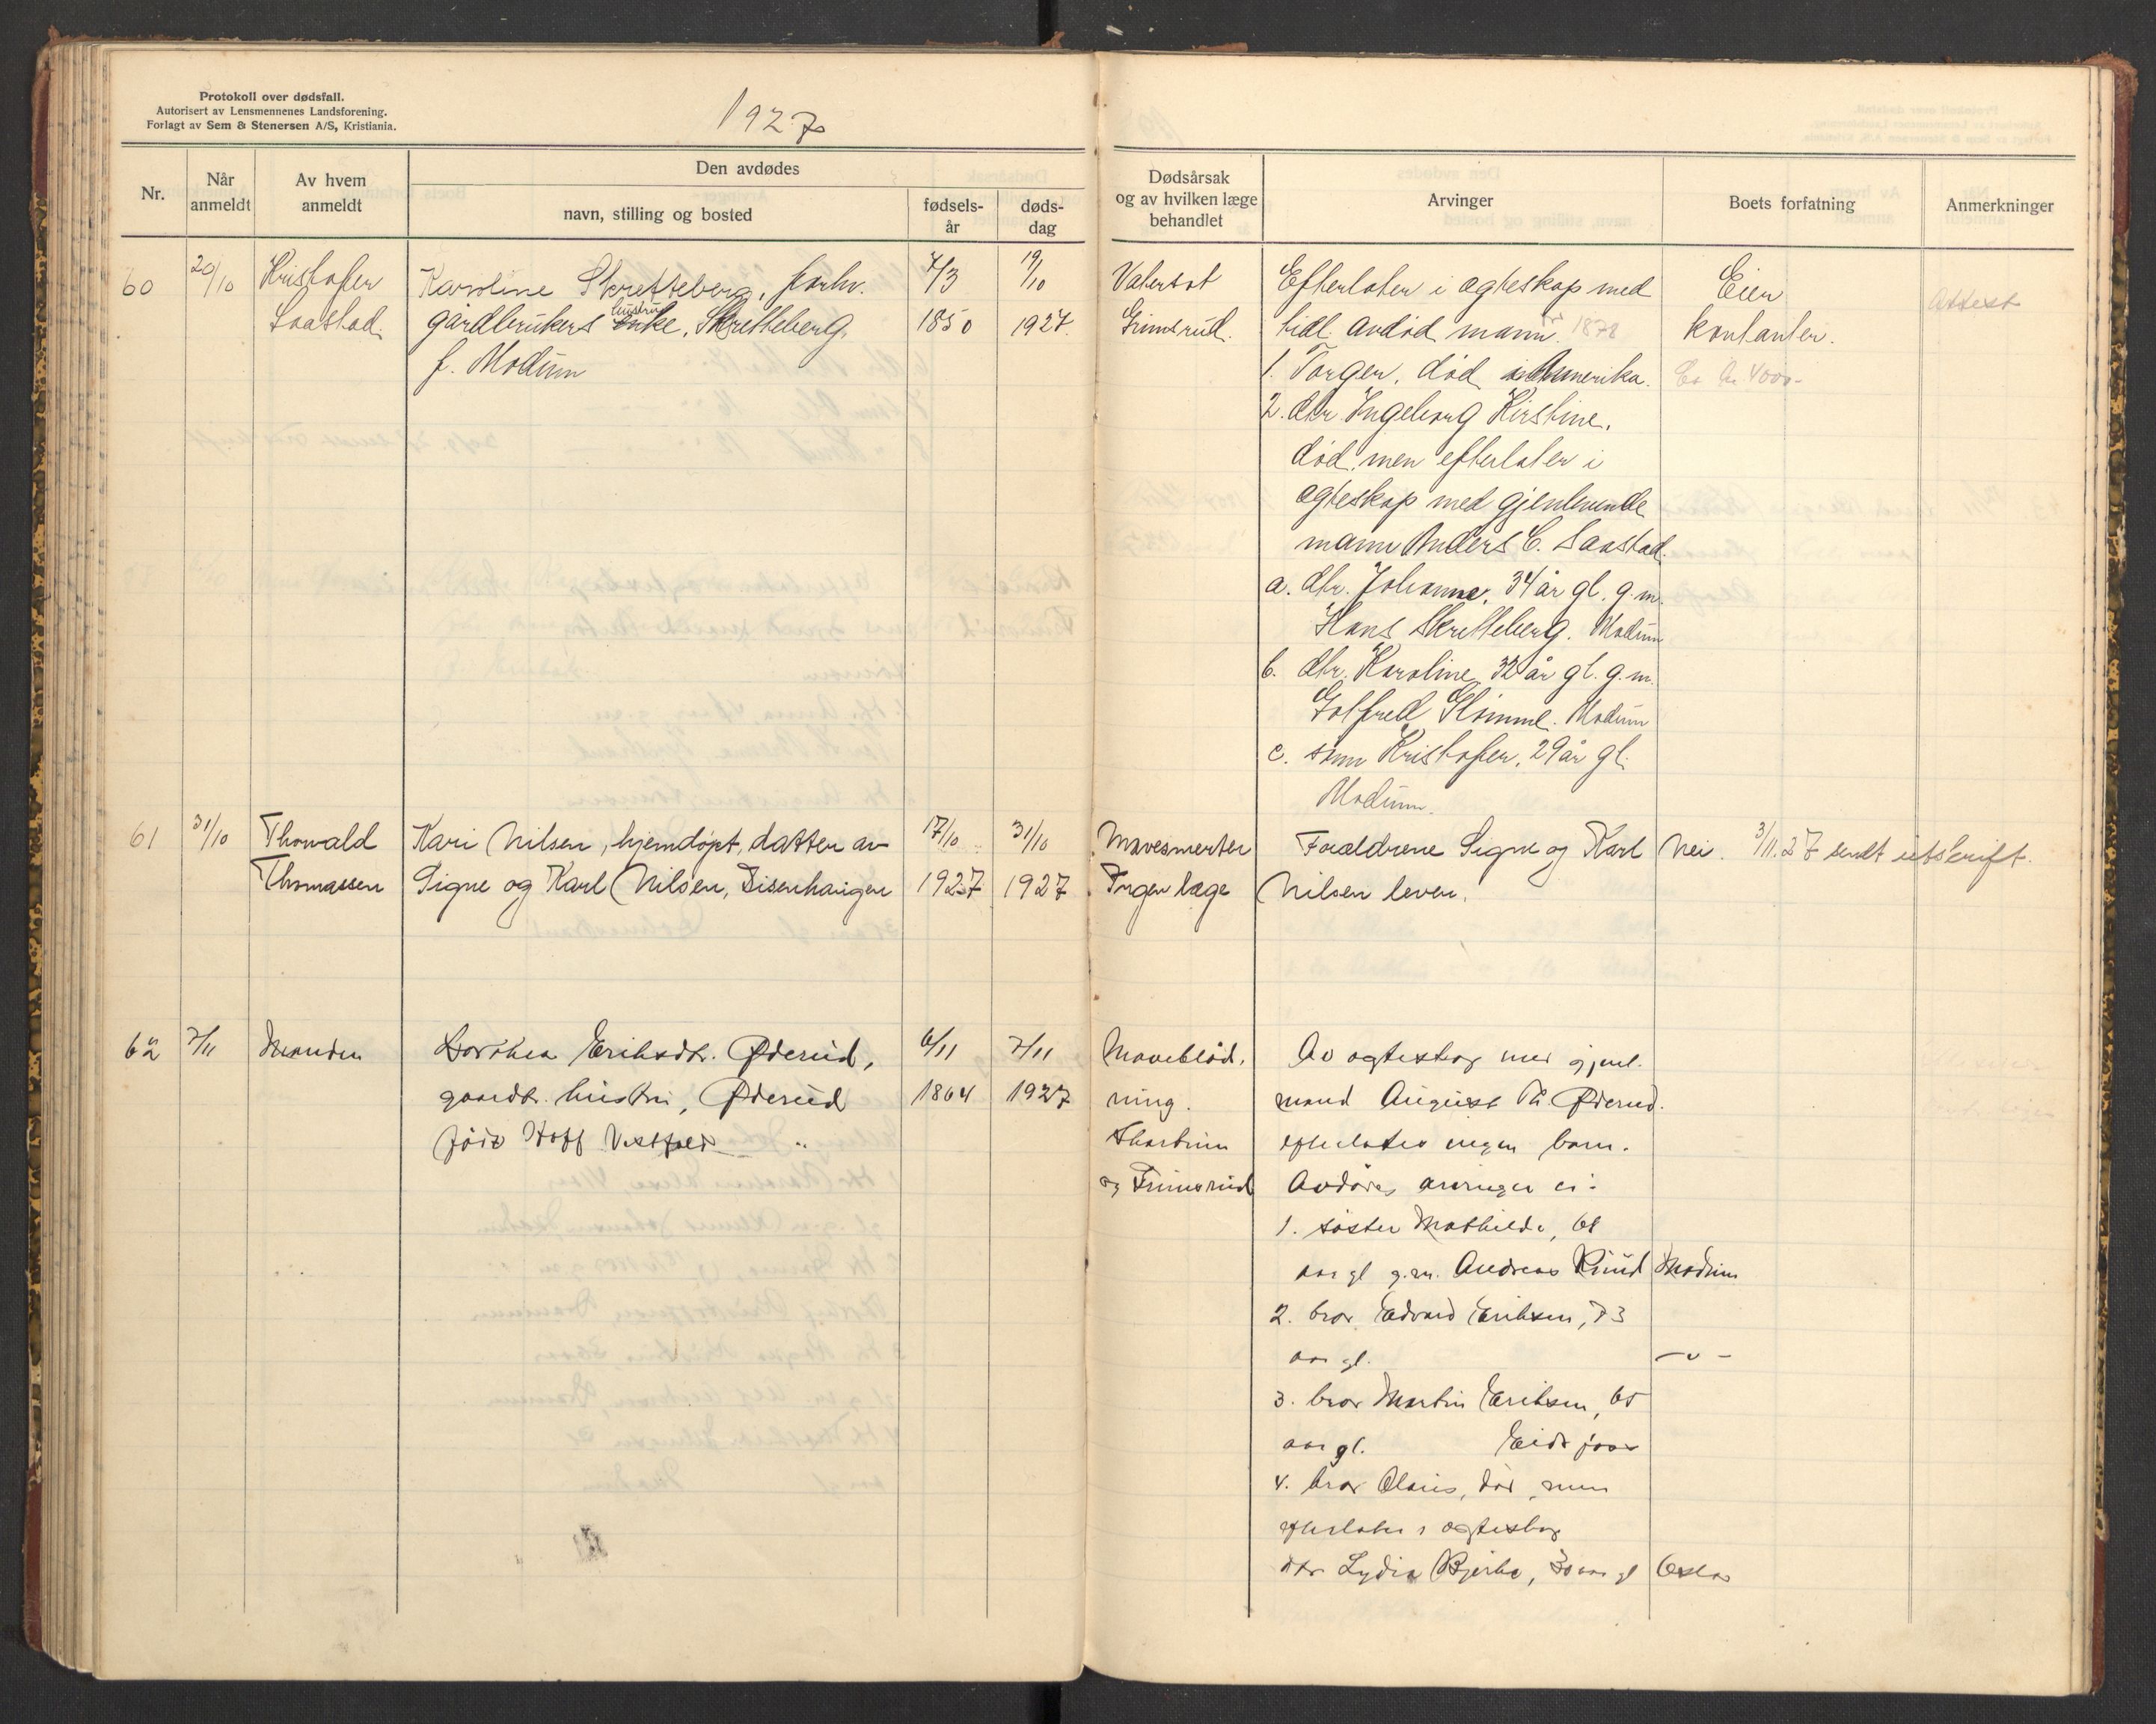 Protokoll over dødsfall.
Autorisert av Lensmennenes Landsforening.
Forlagt av Sem & Stenersen A/S, Kristiania.
1927
Nr.
Når anmeldt
Av hvem anmeldt
Den avdødes
navn, stilling og bosted
fødsels-år
døds-dag
Dødsårsak og av hvilken læge behandlet
Arvinger
Boets forfatning
Anmerkninger
60
20/10
Kristofer
Saastad.
Karoline Skretteberg, forhv.
gårdbrukers hustru enke, Skretteberg.
f. Modum
7/3
1850
19/10
1927.
Vatersot
Grimsrud.
Efterlater i ægteskap med
tidl. avdød mann. 1878
1. Torger, død i Amerika.
2. dtr. Ingeborg Kirstine,
død, men efterlater i
ægteskap med gjenlevende
mann Anders C. Saastad.
a. dtr. Johanne, 34 år gl. g.m.
Hans Skretteberg. Modum
b. dtr. Karoline, 32 år gl. g.m.
Gotfred Glomme. Modum
c. sønn Kristofer, 29 år gl.
Modum.
Eier
kontanter.
Ca kr. 4000-
Attest
61
31/10
Thorvald
Thomassen
Kari Nilsen, hjemdøpt, datter av
Signe og Karl Nilsen, Disenhaugen
17/10
1927
31/10
1927
Mavesmerter
Ingen læge
Forældrene Signe og Karl
Nilsen lever.
Nei.
3/11.27 sendt utskrift.
62
7/11
Manden
Dorthea Eriksdtr. Øderud,
gaardbr. hustru, Øderud
født Hoff Vestfold "
6/11
1864
7/11
1927
Maveblød,
ning.
Thortrum
og Grimsrud
Av ægteskap med gjenl.
mand August Th. Øderud.
efterlates ingen barn.
Avdødes arvinger er:
1. søster Mathilde, 68
aar gl g.m. Andreas Ruud Modum
2. bror Edvard Eriksen, 73
aar gl. - " -
3. bror Martin Eriksen, 65
aar gl. Eidsfoss
4. bror Olaus, død, men
efterlater i ægteskap
dtr Lydia Bjerke, 30 aar gl Oslo